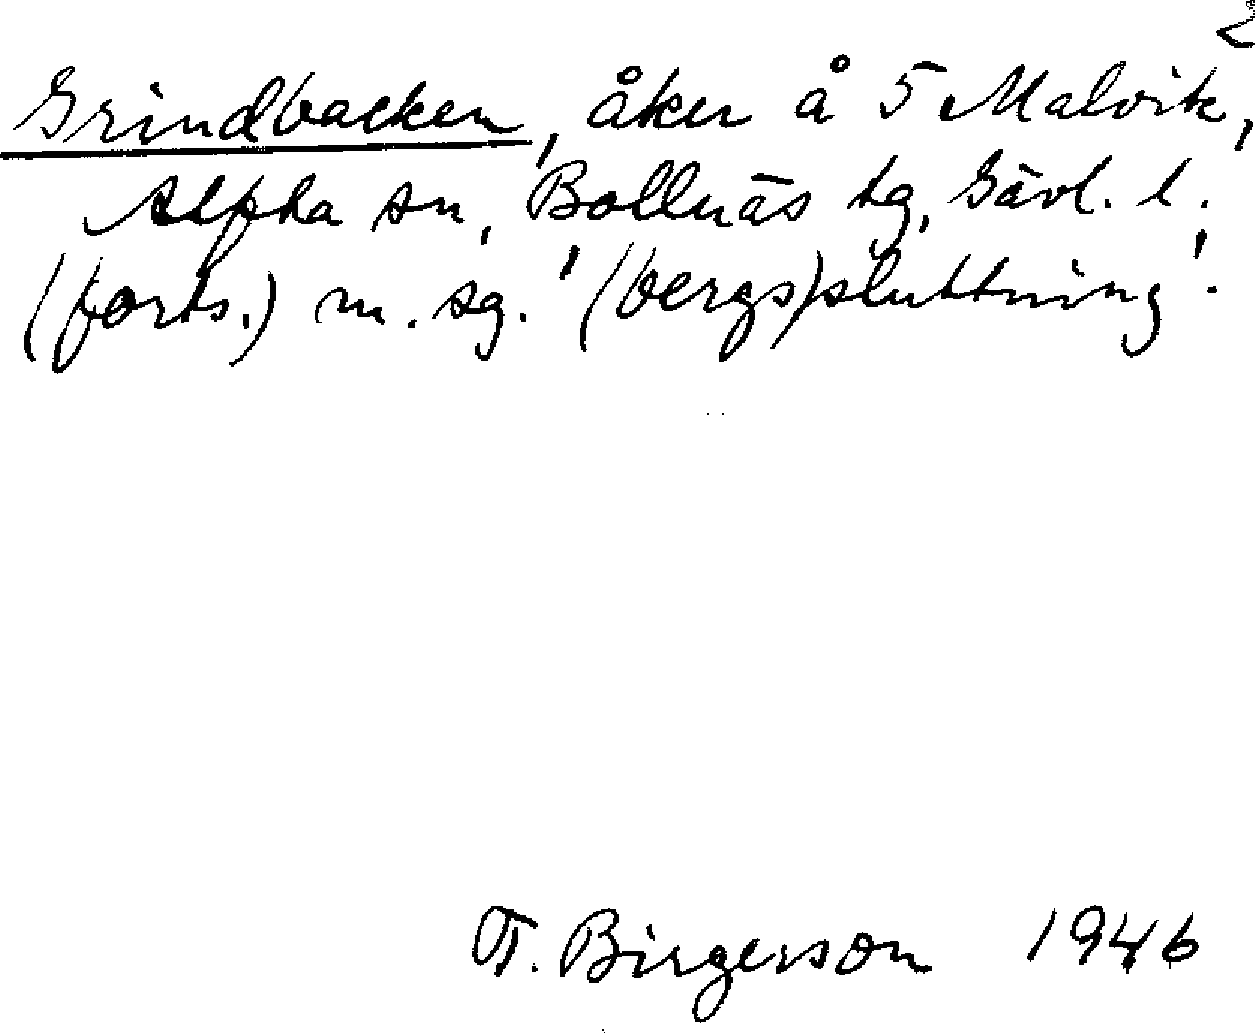 2
Grindbacken, åker å 5 Malvik,
Alfta sn, Bollnäs tg, Gävl. l.
(forts.) m. sg. '(bergs)sluttning'.
T. Birgerson 1946